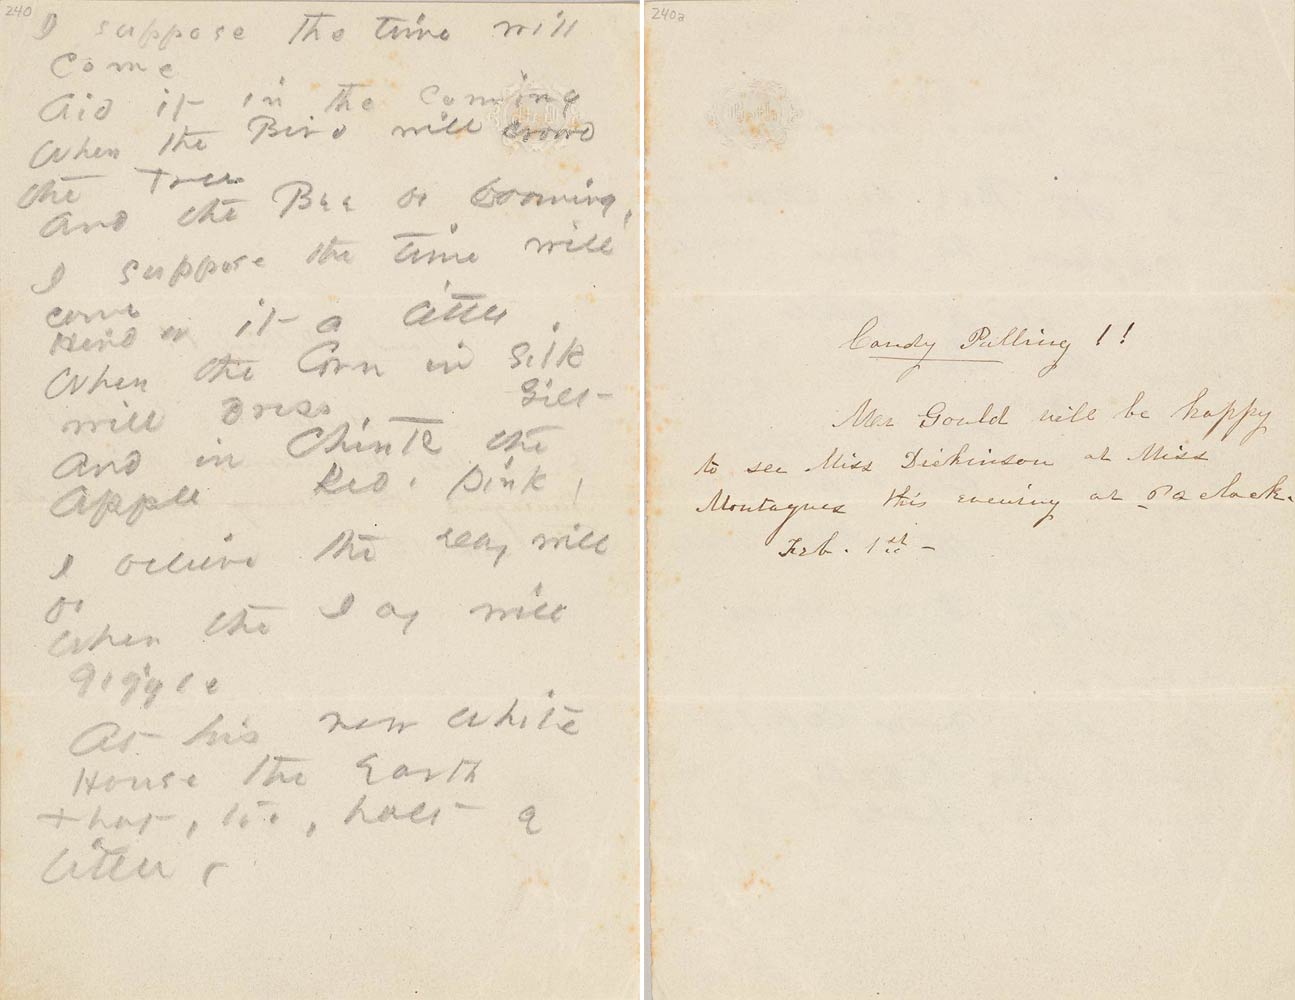 240
I suppose the time will
come
Aid it in the coming
When the Bird will crowd
the Tree
And the Bee be booming.
I suppose the time will
come
Hinder it a little
When the Corn in Silk
will dress
Silk-
And in Chintz the
Apple Red. Pink
I believe the Day will
be
When the Jay will
giggle
At his new white
House the Earth
that, too, halt a
little -
240a
Candy Pulling!!
Mr Gould will be happy
to see Miss Dickinson at Miss
Montagues this evening at o clock.
Feb. 1st -